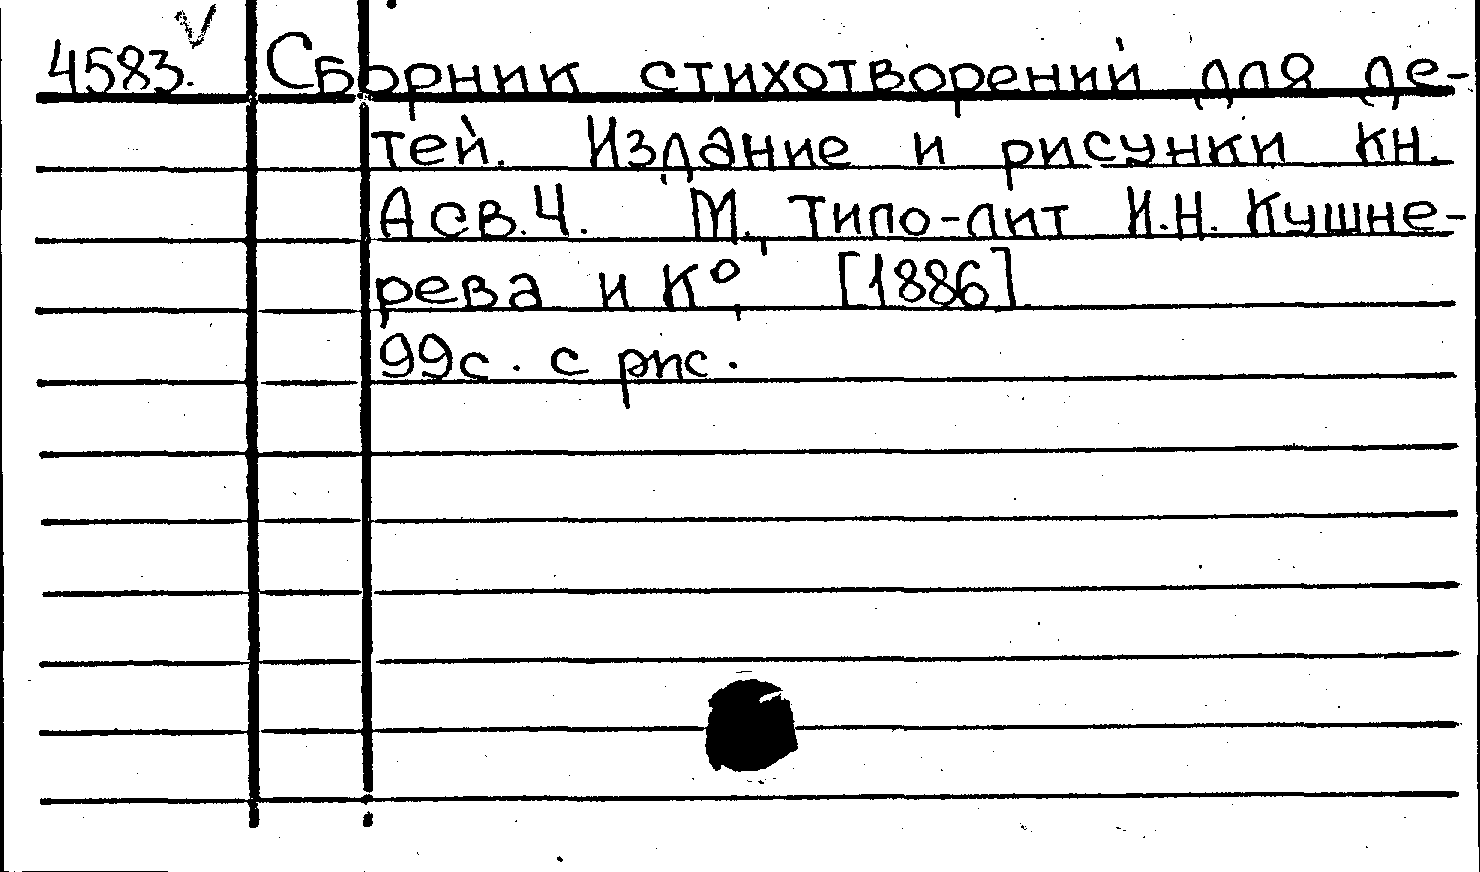 4583. V Сборник стихотворений для де-
тей. Издание и рисунки кн.
А св. Ч. М., Типо-лит И.Н. Кушне-
рева и К°, [1886]
99с. с рис.